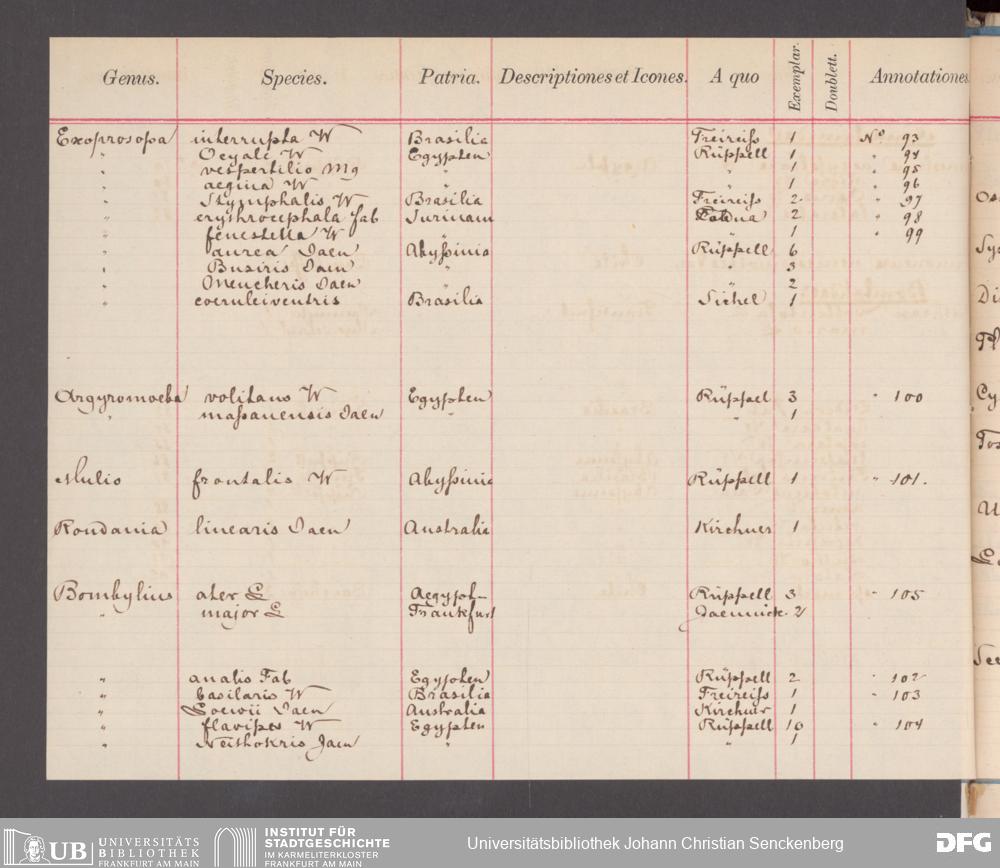 Genus. Species. Patria. Descriptiones et Icones. A quo Exemplar. Doublett. Annotationes
Exoprosopa interrupta W Brasilia Freireiss 1 No 93
" Ocyale W Egypten Rüppell 1 " 94
" vespertilio Mg " " 1 " 95
" aegina W " " 1 " 96
" Stymphalis W Brasilia Freireiss 2 " 97
" erythrocephala Fab Surinam 2 " 98
" fenestella W " " 1 " 99
" aurea Jaen Abyssinia Rüppell 6
" Busiris Jaen " " 3
" Mencheris Jaen " " 2
" coeruleiventris Brasilia Sichel 1
Argyromoeba volitans W Egypten Rüppel 3 " 100
" massauensis Jaen " " 1
Mulio frontalis W Abyssinia Rüppell 1 " 101.
Rondania linearis Jaen Australia Kirchner 1
Bombylius ater L Aegypt- Rüppell 3 " 105
" major L Frankfurt Jaennick. 2
" analis Fab Egypten Rüppell 2 " 102
" basilaris W Brasilia Freireiss 1 " 103
" Loewii Jaen Australia Kirchner 1
" flavipes W Egypten Rüppell 10 " 104
" Neithokris Jaen " " 1
UB UNIVERSITÄTS BIBLIOTHEK FRANKFURT AM MAIN
INSTITUT FÜR STADTGESCHICHTE IM KARMELITERKLOSTER FRANKFURT AM MAIN
Universitätsbibliothek Johann Christian Senckenberg
DFG